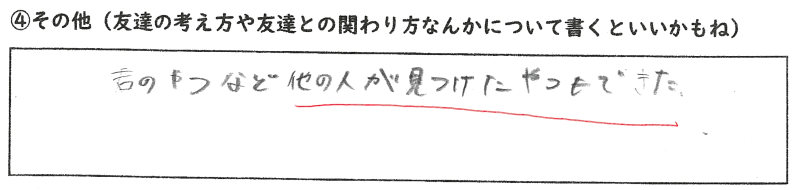 ④その他（友達の考え方や友達との関わり方なんかについて書くといいかもね）
言のやつなど他の人が見つけたやつもできた。